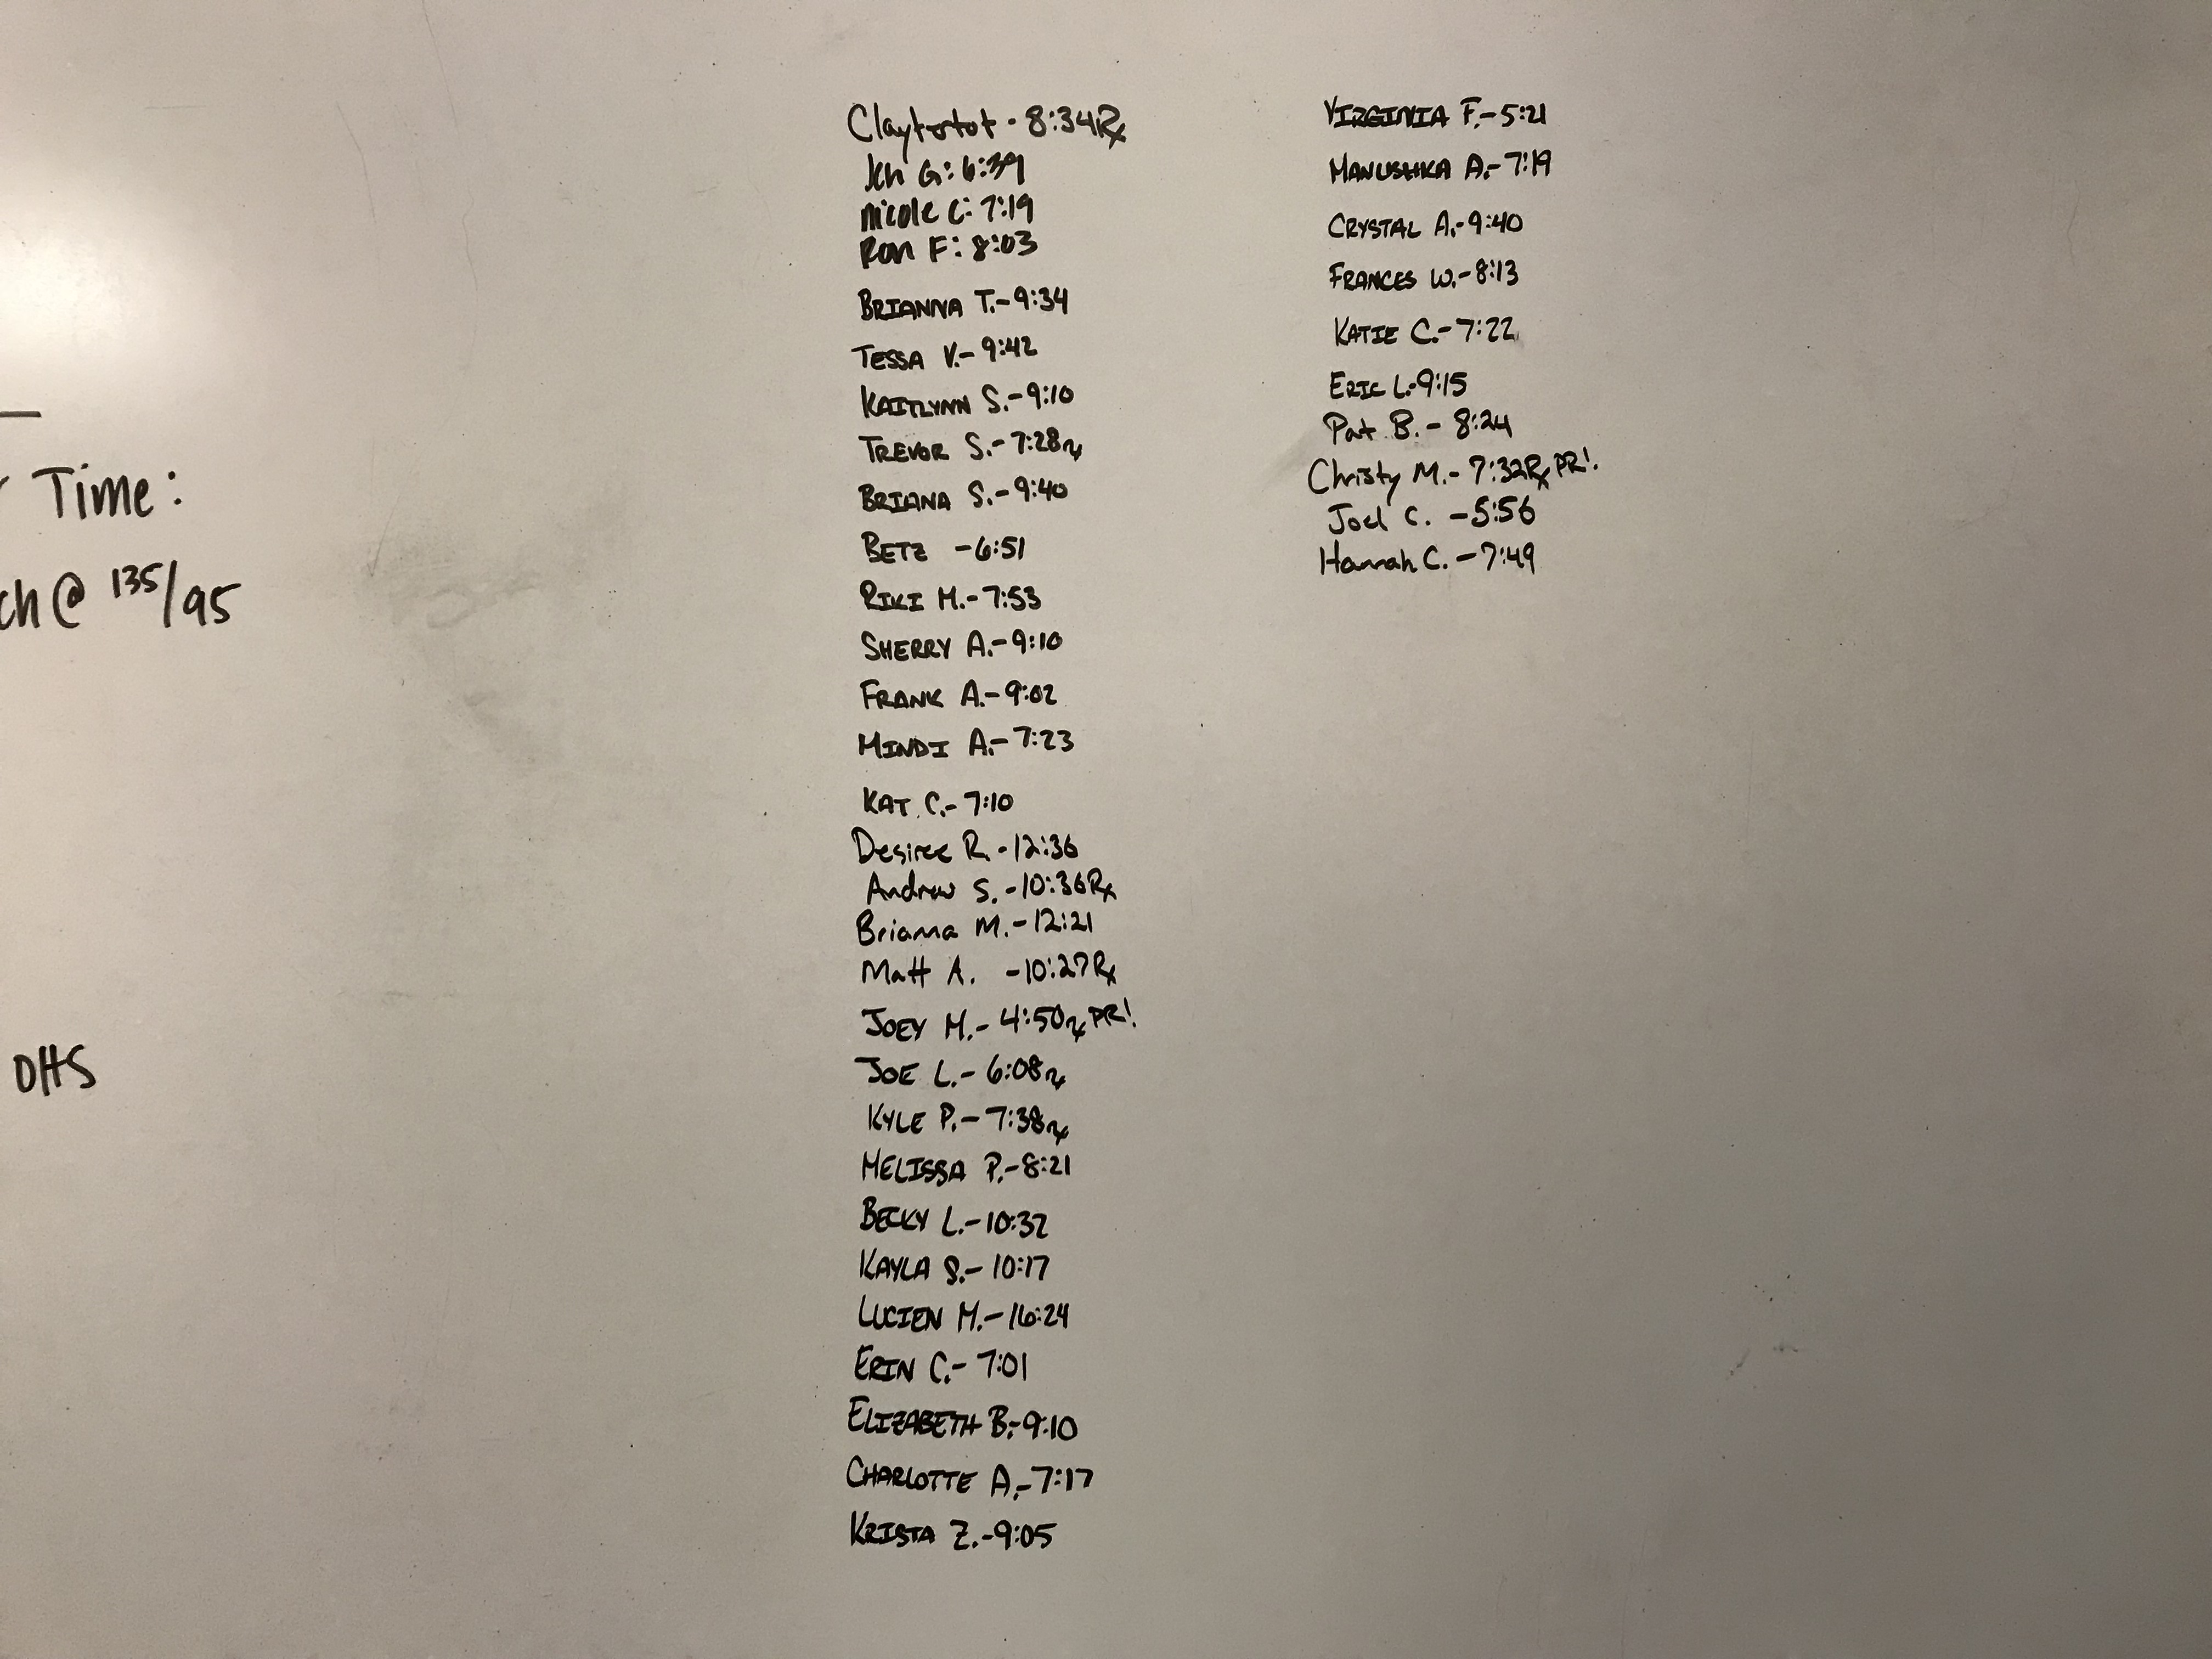 Time:
ch @ 135/95
OHS
Claytortot - 8:34 Rx
Jen G: 6:39
Nicole C: 7:19
Ron F: 8:03
BRIANNA T. - 9:34
TESSA V. - 9:42
KAITLYNN S. - 9:10
TREVOR S. - 7:28 rx
BRIANA S. - 9:40
BETZ - 6:51
RIKI M. - 7:53
SHERRY A. - 9:10
FRANK A. - 9:02
MINDI A. - 7:23
KAT C. - 7:10
Desiree R. - 12:36
Andrew S. - 10:36 Rx
Brianna M. - 12:21
Matt A. - 10:27 Rx
JOEY M. - 4:50 rx PR!
JOE L. - 6:08 rx
KYLE P. - 7:38 rx
MELISSA P. - 8:21
BECKY L. - 10:32
KAYLA S. - 10:17
LUCIEN M. - 16:24
ERIN C. - 7:01
ELIZABETH B. - 9:10
CHARLOTTE A. - 7:17
KRISTA Z. - 9:05
VIRGINIA F. - 5:21
MANUSHKA A. - 7:19
CRYSTAL A. - 9:40
FRANCES W. - 8:13
KATIE C. - 7:22
ERIC L. - 9:15
Pat B. - 8:24
Christy M. - 7:32 Rx PR!
Joel C. - 5:56
Hannah C. - 7:49